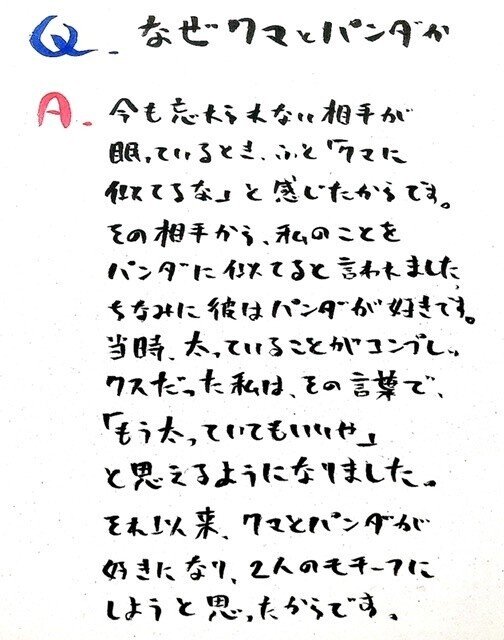 Q. なぜクマとパンダか
A. 今も忘れられない相手が
眠っているとき、ふと「クマに
似てるな」と感じたからです。
その相手から、私のことを
パンダに似てると言われました。
ちなみに彼はパンダが好きです。
当時、太っていることがコンプレッ
クスだった私は、その言葉で、
「もう太っていてもいいや」
と思えるようになりました。
それ以来、クマとパンダが
好きになり、2人のモチーフに
しようと思ったからです。